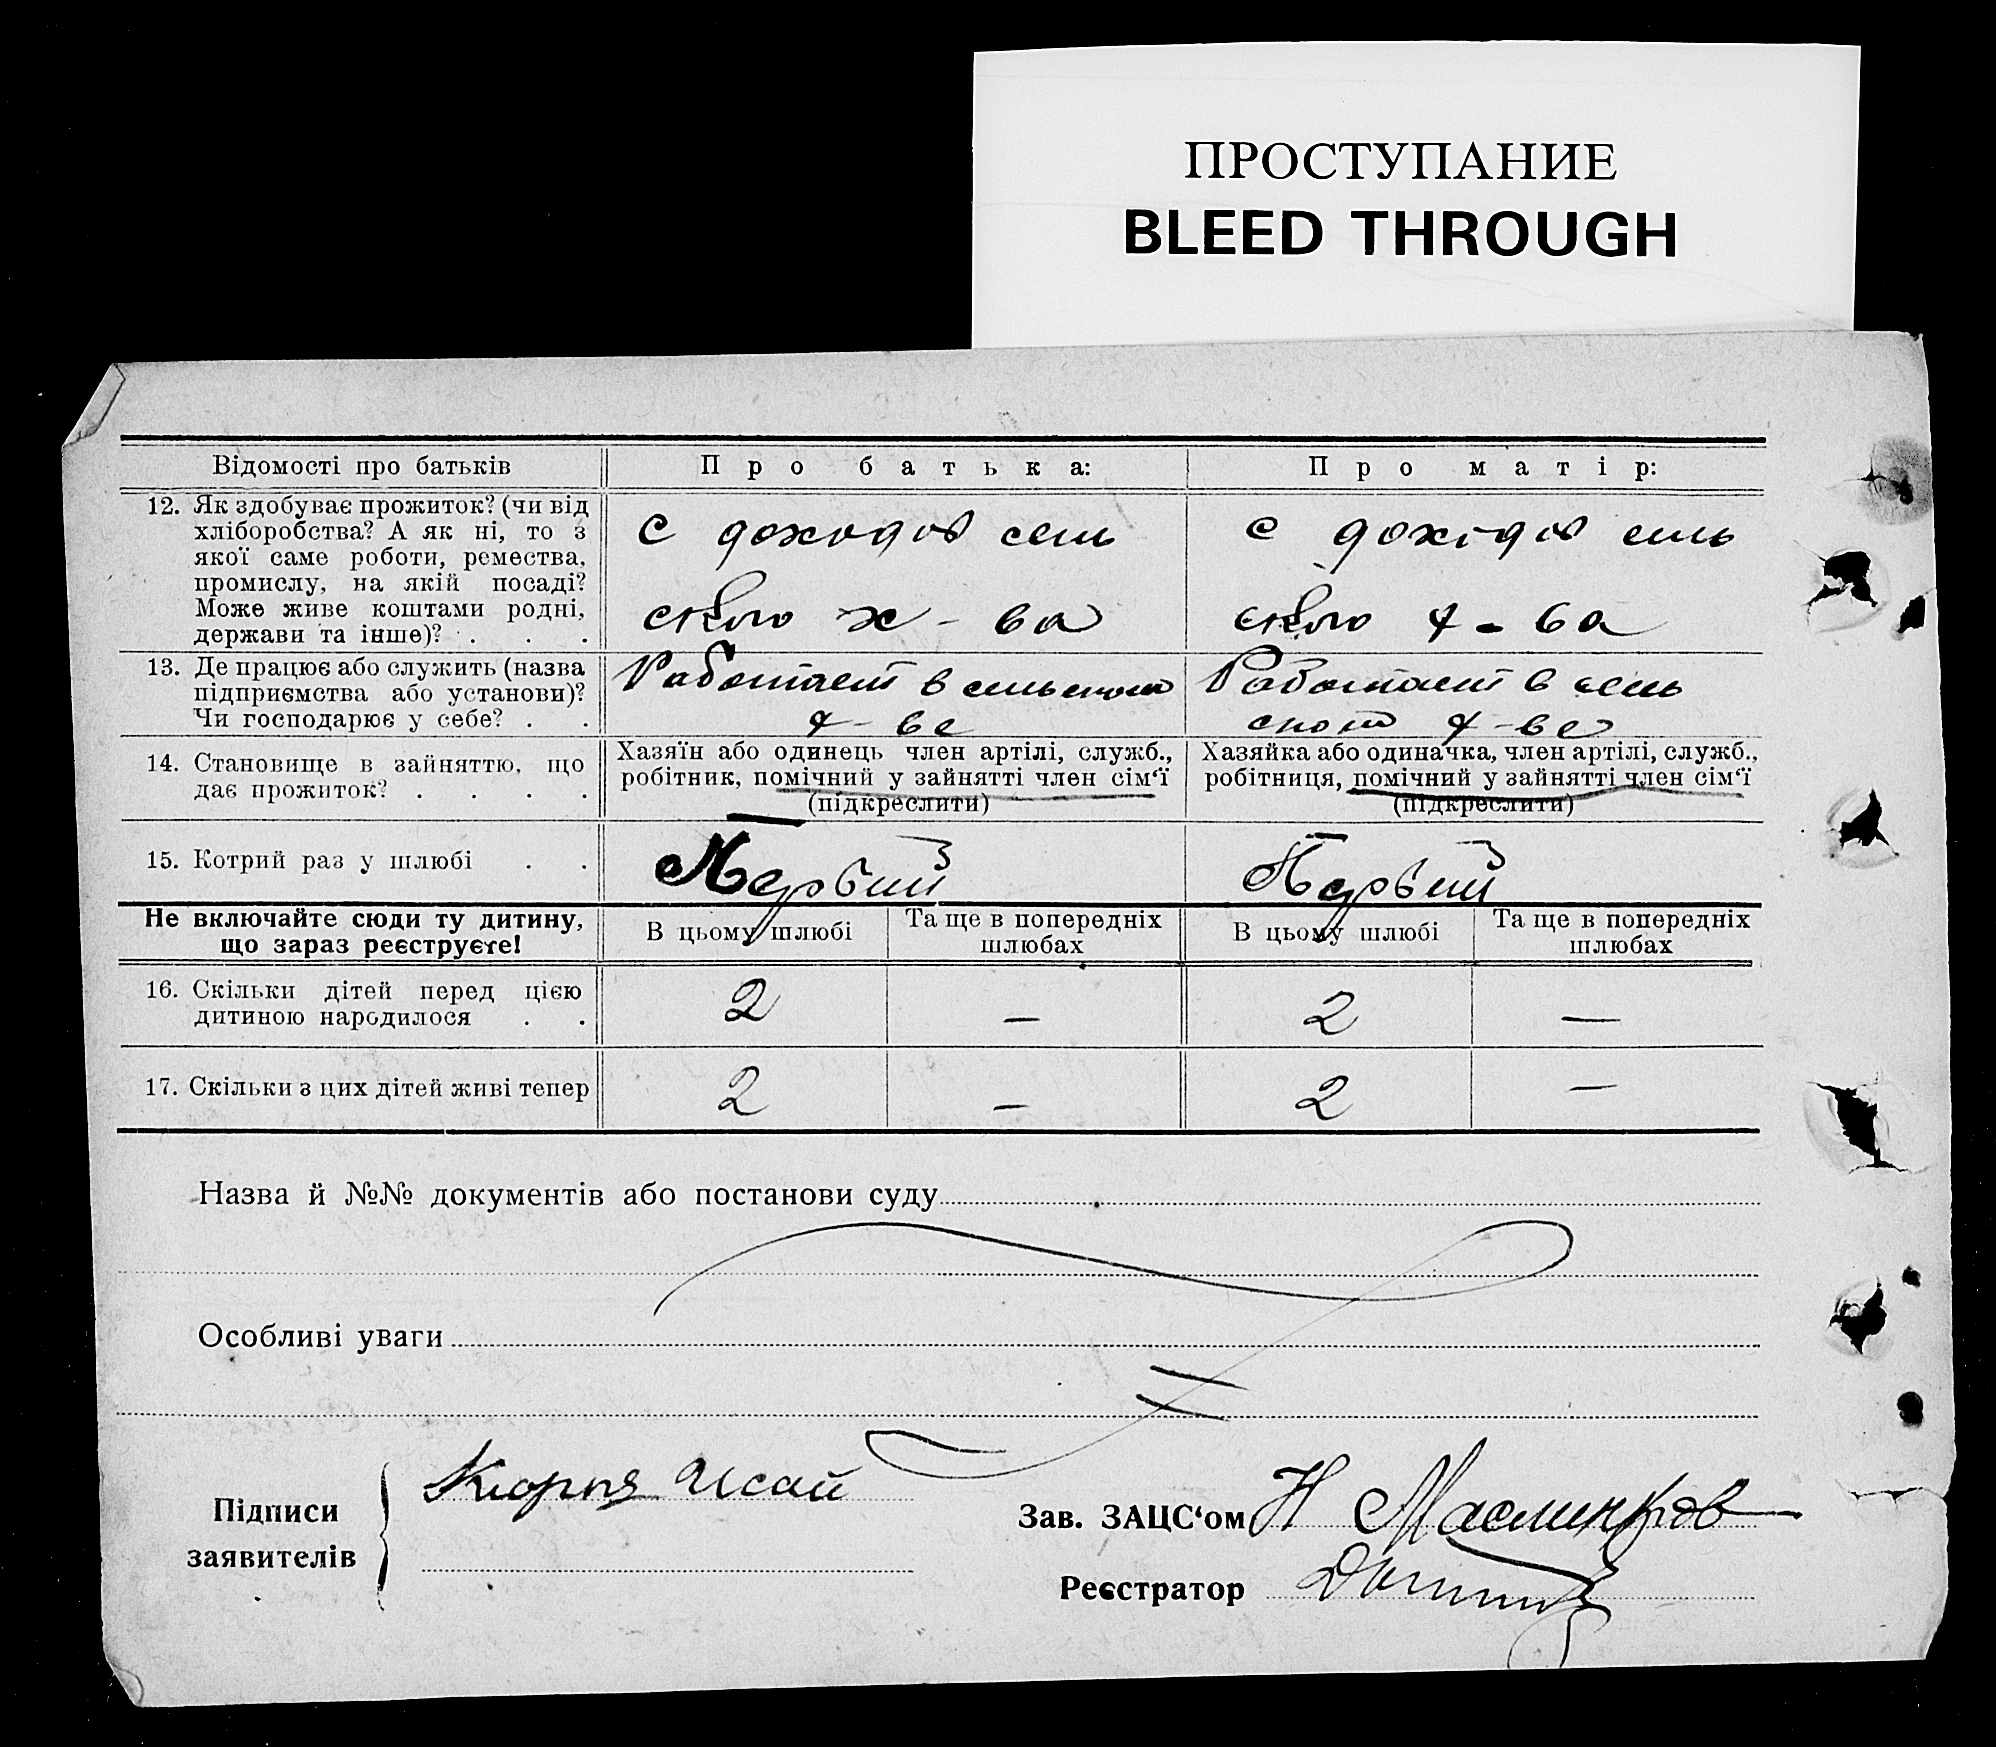 ПРОСТУПАНИЕ
BLEED THROUGH
Відомості про батьків
Про батька:
Про матір:
12. Як здобуває прожиток? (чи від
хліборобства? А як ні, то з
якої саме роботи, ремества,
промислу, на якій посаді?
Може живе коштами родні,
держави та інше)? . . .
с доходов сель
ского х-ва
с доходов сель
ского х-ва
13. Де працює або служить (назва
підприємства або установи)?
Чи господарює у себе? . .
Работает в сельском
х-ве
Работает в сель
ском х-ве
14. Становище в зайняттю, що
дає прожиток? . . . .
Хазяїн або одинець член артілі, служб.,
робітник, помічний у зайнятті член сім‘ї
(підкреслити)
Хазяйка або одиначка, член артілі, служб.,
робітниця, помічний у зайнятті член сім‘ї
(підкреслити)
15. Котрий раз у шлюбі . .
Первий
Первий
Не включайте сюди ту дитину,
що зараз реєструєте!
В цьому шлюбі
Та ще в попередніх
шлюбах
В цьому шлюбі
Та ще в попередніх
шлюбах
16. Скільки дітей перед цією
дитиною народилося . .
2 – 2 –
17. Скільки з цих дітей живі тепер
2 – 2 –
Назва й №№ документів або постанови суду
Особливі уваги
Підписи
заявителів
Исай
Зав. ЗАЦС‘ом Н
Реєстратор